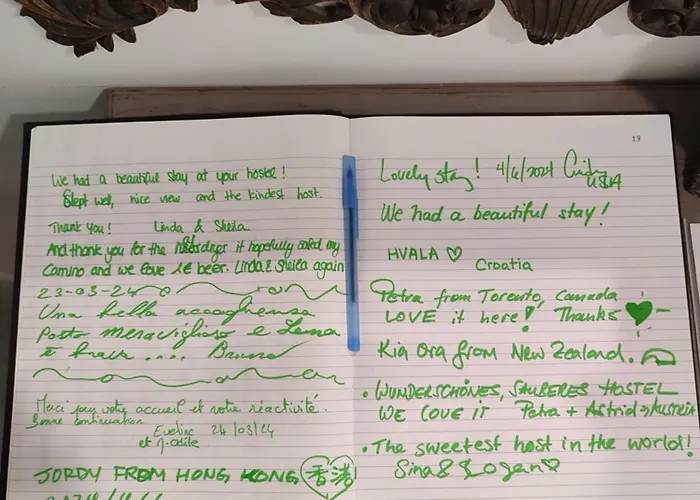 We had a beautiful stay at your hostel!
Slept well, nice view and the kindest host.
Thank you! Linda & Sheila
And thank you for the it hopefully saved my
Camino and we love 1€ beer. Linda & Sheila again
23-03-24
Una bella accoglienza
Posto meraviglioso e
è brava .... Bruno
Merci pour votre accueil et votre réactivité.
Bonne continuation
Eveline 24/03/24
et M-Odile
JORDY FROM HONG KONG 香港
19
Lovely stay! 4/6/2024 Cindy
USA
We had a beautiful stay!
HVALA ♡
Croatia
Petra from Toronto, Canada
LOVE it here! Thanks
Kia Ora from New Zealand.
• WUNDERSCHÖNES, SAUBERES HOSTEL
WE LOVE IT Petra + Astrid → Austria
• The sweetest host in the world!
Sina & Logan ♡